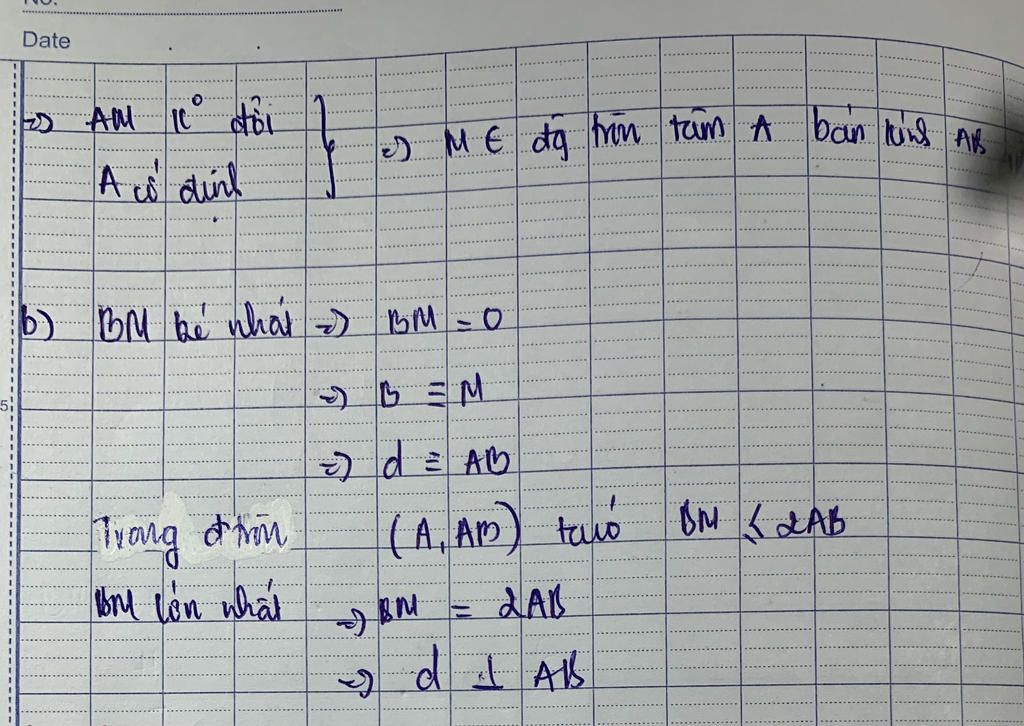 No.
Date
=> AM k° đổi
A cố định
=> M ∈ đg tròn tâm A bán kính AB
b) BM bé nhất => BM = 0
5
=> B ≡ M
=> d ≡ AB
Trong đ tròn (A, AB) ta có BM ≤ 2AB
BM lớn nhất => BM = 2AB
=> d ⊥ AB